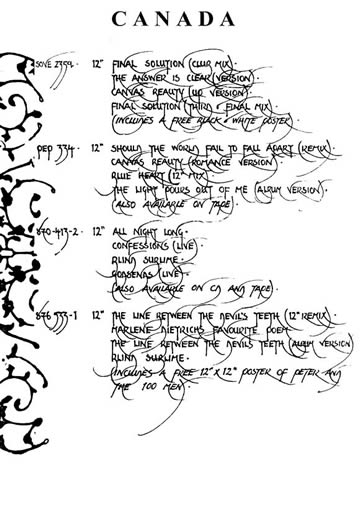 CANADA
SOVE 2354 · 12" FINAL SOLUTION (CLUB MIX) ·
THE ANSWER IS CLEAR (VERSION) ·
CANVAS BEAUTY (U.P. VERSION) ·
FINAL SOLUTION (THIRD + FINAL MIX) ·
(INCLUDES A FREE BLACK + WHITE POSTER) ·
PEP 334 · 12" SHOULD THE WORLD FAIL TO FALL APART (REMIX) ·
CANVAS BEAUTY (ROMANCE VERSION) ·
BLUE HEART (12" MIX) ·
THE LIGHT POURS OUT OF ME (ALBUM VERSION) ·
(ALSO AVAILABLE ON TAPE) ·
870-413-2 · 12" ALL NIGHT LONG ·
CONFESSIONS (LIVE) ·
BLIND SUBLIME ·
ROSEGARDENS (LIVE) ·
(ALSO AVAILABLE ON CD AND TAPE) ·
876 533-1 12" THE LINE BETWEEN THE DEVIL'S TEETH (12" REMIX) ·
MARLENE DIETRICH'S FAVOURITE POEM ·
THE LINE BETWEEN THE DEVIL'S TEETH (ALBUM VERSION)
BLIND SUBLIME ·
(INCLUDES A FREE 12" X 12" POSTER OF PETER AND
THE 100 MEN) ·